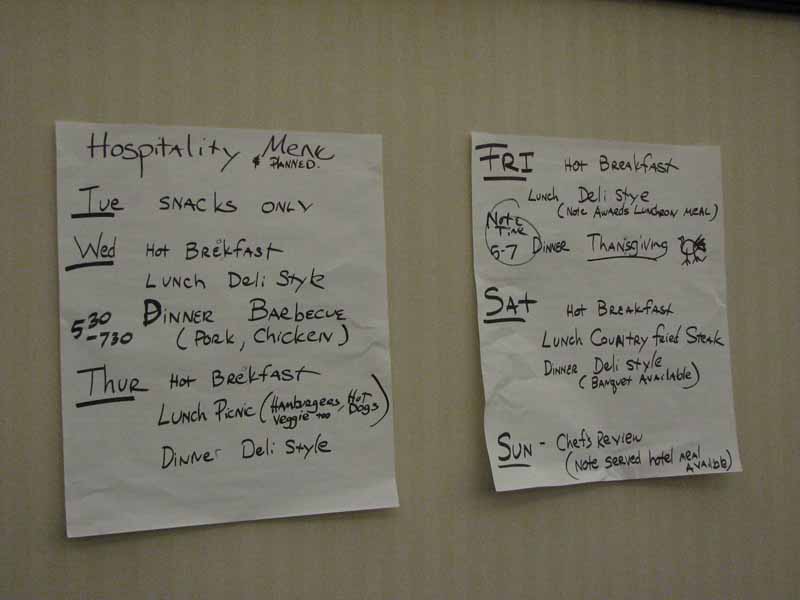 Hospitality & Menu
PLANNED.
Tue SNACKS ONLY
Wed Hot Brekfast
Lunch Deli Style
5:30 -730 Dinner Barbecue
(Pork, Chicken)
Thur Hot Brekfast
Lunch Picnic (Hamburgers, Hot Dogs
Veggie too)
Dinner Deli Style
FRI Hot Breakfast
Lunch Deli Stye
(Note Awards Luncheon Meal)
Note Time
5-7 Dinner Thansgiving
SAt Hot Breakfast
Lunch Country fried Steak
Dinner Deli Style
(Banquet Available)
Sun - Chefs Review
(Note served hotel meal
Availble)